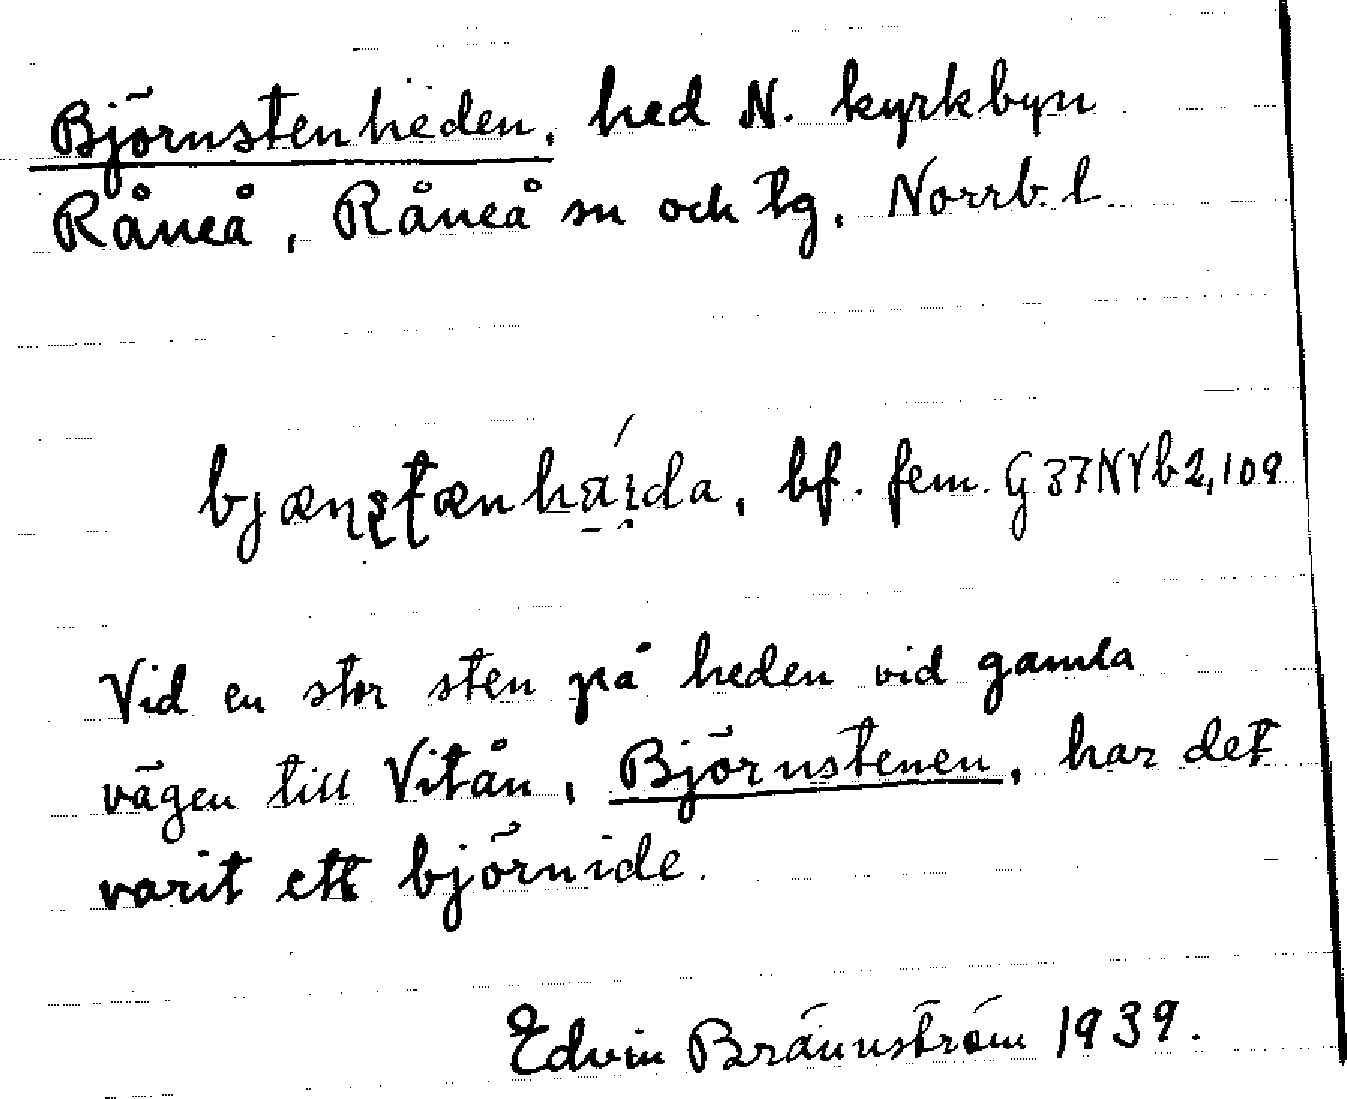 Björnstenheden, hed N. kyrkbyn
Råneå, Råneå sn och tg, Norrb. l.
bjæɳʂʈænhá̱i̯da, bf. fem. G 37 NVb 2, 109
Vid en stor sten på heden vid gamla
vägen till Vitån, Björnstenen, har det
varit ett björnide.
Edvin Brännström 1939.